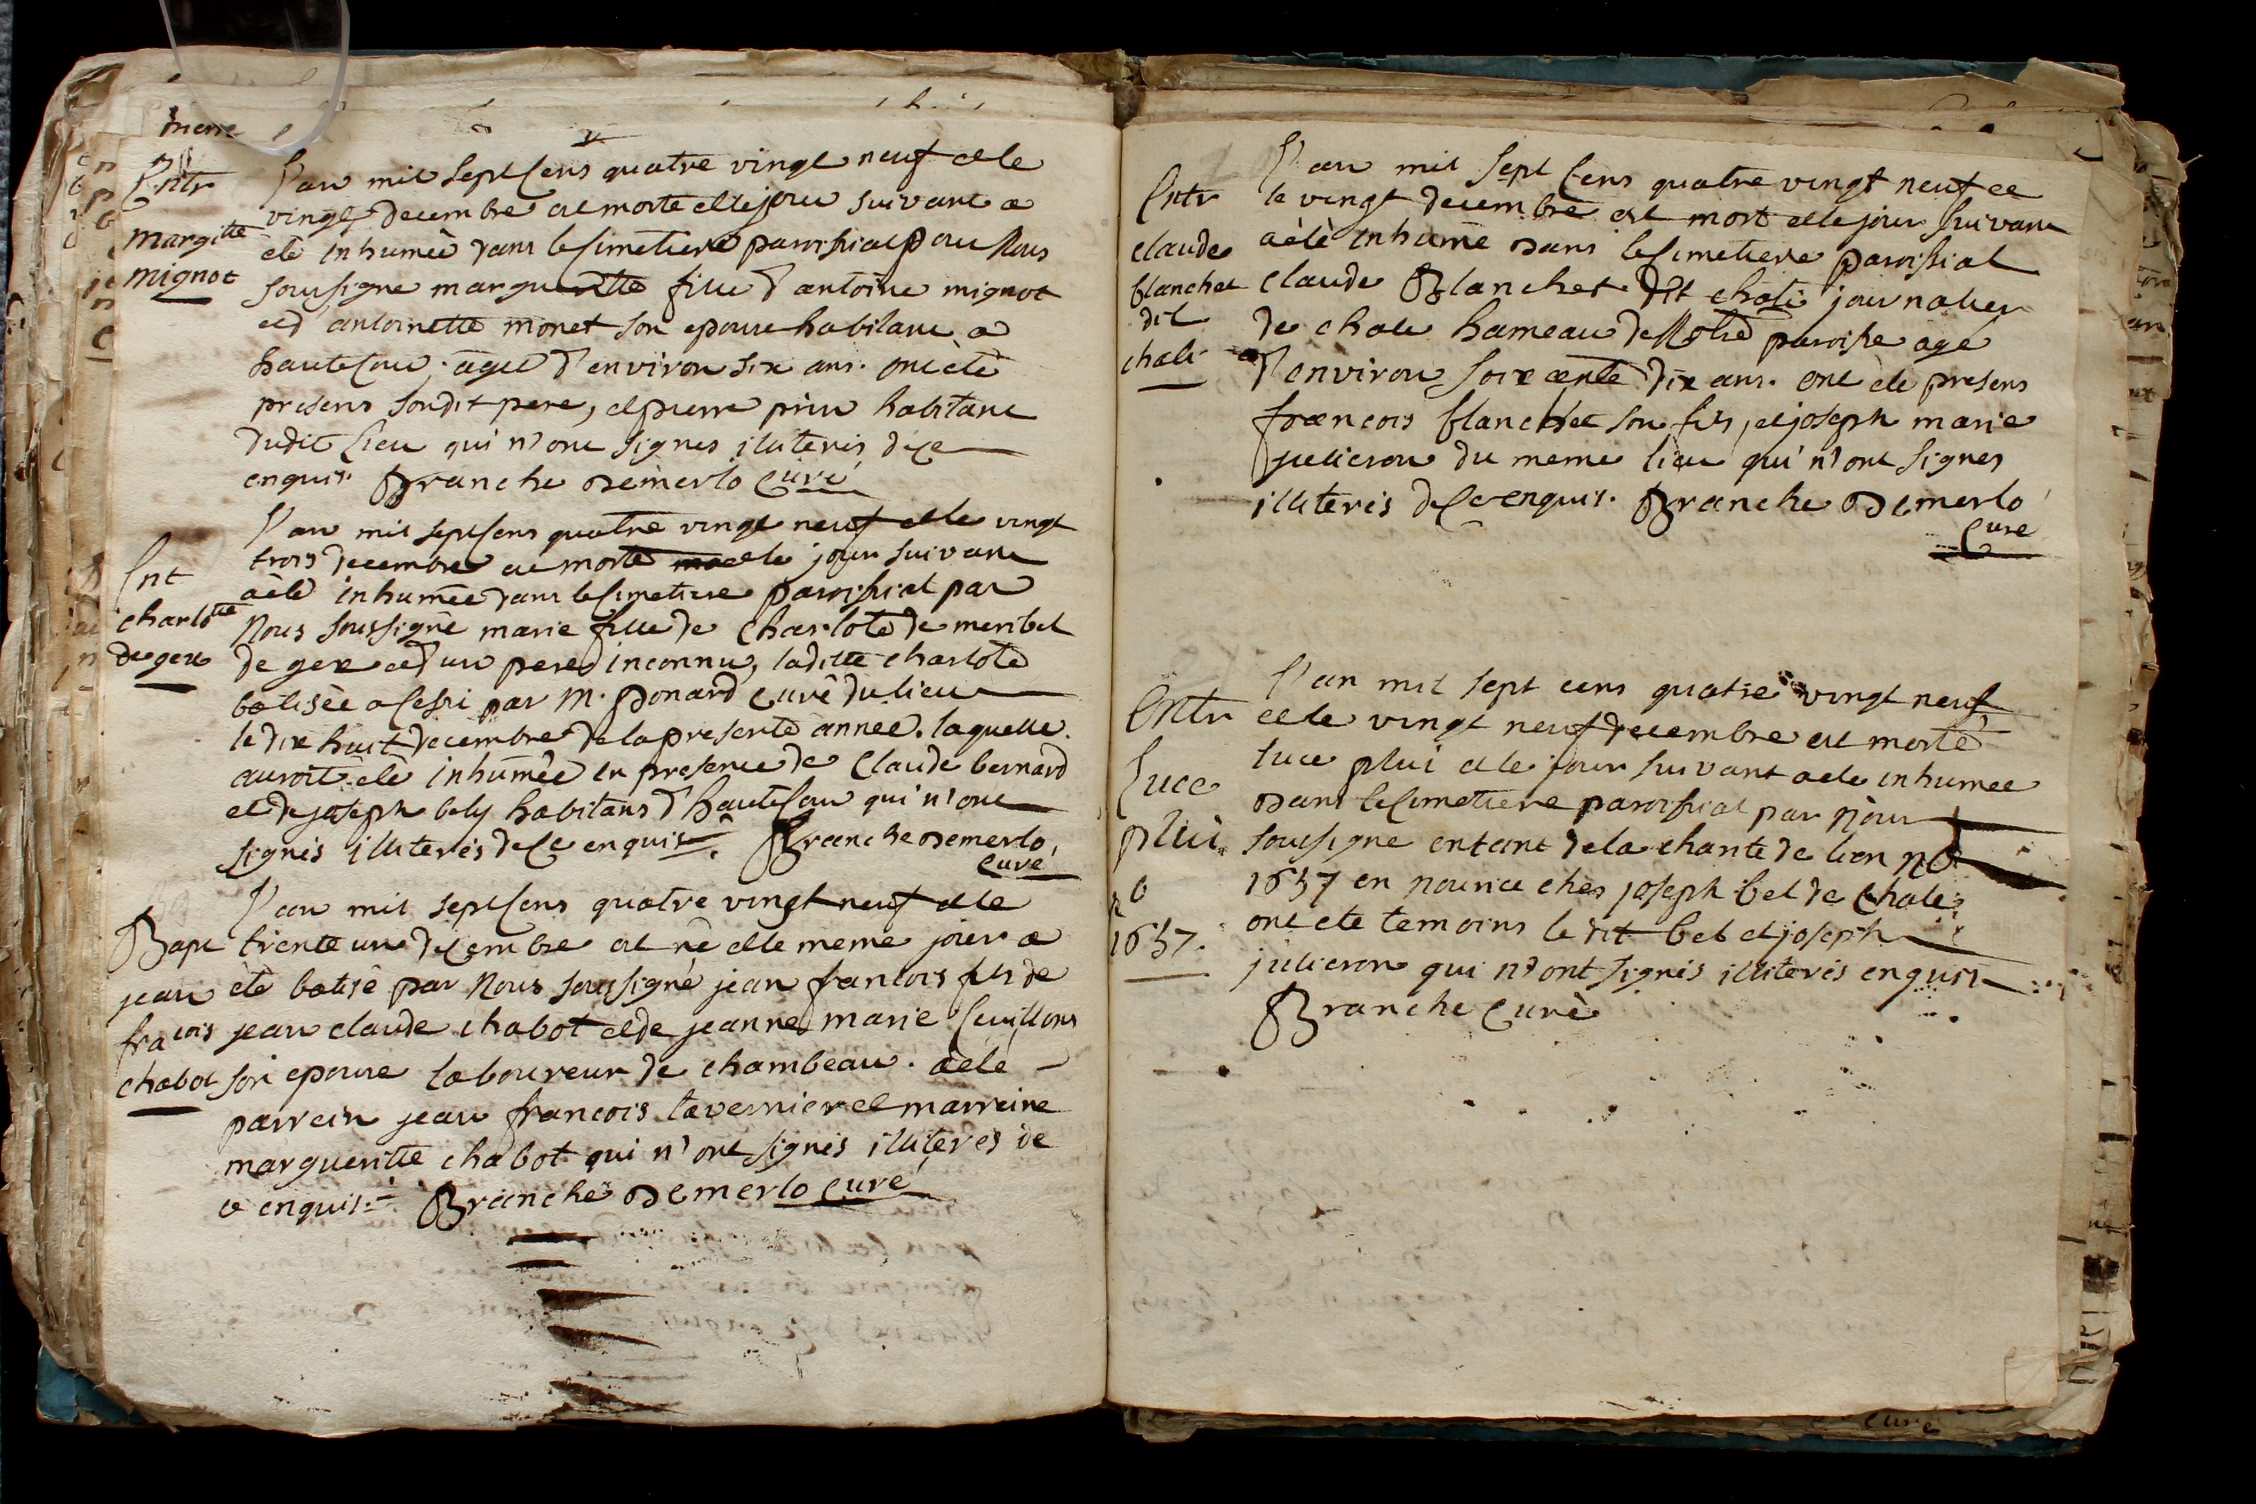 Entr
margitte
mignot
L'an mil sept cens quatre vingt neuf et le
vingt decembre est morte et le jour suivant a
été inhumée dans le cimetiere paroissial par Nous
soussigne margueritte fille d'antoine mignot
et d'antoinette monet son epouse habitant a
hautecour. agée d'environ six ans. ont été
presens sondit pere, et pierre habitant
dudit lieu qui n'ont signes illiteris de ce
enquis. Branche Demerlo Curé
Ent
charlotte
de gex
L'an mil sept cens quatre vingt neuf et le vingt
trois decembre est morte et le jour suivant
a été inhumée dans le cimetiere paroissial par
Nous soussigné marie fille de Charlote de meribel
de gex et d'un pere inconnu, laditte charlote
batisée a Cessi par M. ponard Curé du lieu
le dix huit decembre de la presente annee. laquelle
auroit été inhumée en presence de Claude bernard
et de joseph bely habitans d'hautecour qui n'ont
signés illiterés de ce enquis. Branche Demerlo
Curé
Bapt
jean
fracois
chabot
L'an mil sept cens quatre vingt neuf et le
trente un decembre est né et le meme jour a
été batisé par Nous soussigné jean francois fils de
jean claude chabot et de jeanne marie Cuillons
son epouse laboureur de chambeau. a été
parrein jean francois tavernier et marreine
margueritte chabot qui n'ont signés illiterés de
ce enquis. Branche Demerlo curé
Entr
claude
blanchet
dit
chali
L'an mil sept cens quatre vingt neuf et
le vingt decembre est mort et le jour suivant
a été inhumé dans le cimetiere paroissial
Claude Blanchet dit chali journalier
de chale hameau de Notre paroisse agé
d'environ soixante dix ans. ont été presens
francois blanchet son fils, et joseph marie
julieron du meme lieu qui n'ont signes
illiteris de ce enquis. Branche Demerlo
Cure
Entr
Luce
plui
no
1657.
L'an mil sept cens quatre vingt neuf
et le vingt neuf decembre est morte
luce plui et le jour suivant a ete inhumee
dans le cimetiere paroissial par Nous
soussigne enfant de la charite de lion no
1657 en nourice ches joseph bel de Chale
ont ete temoins le dit bel et joseph
julieron qui n'ont signés illiterés enquis
Branche Curé
Curé